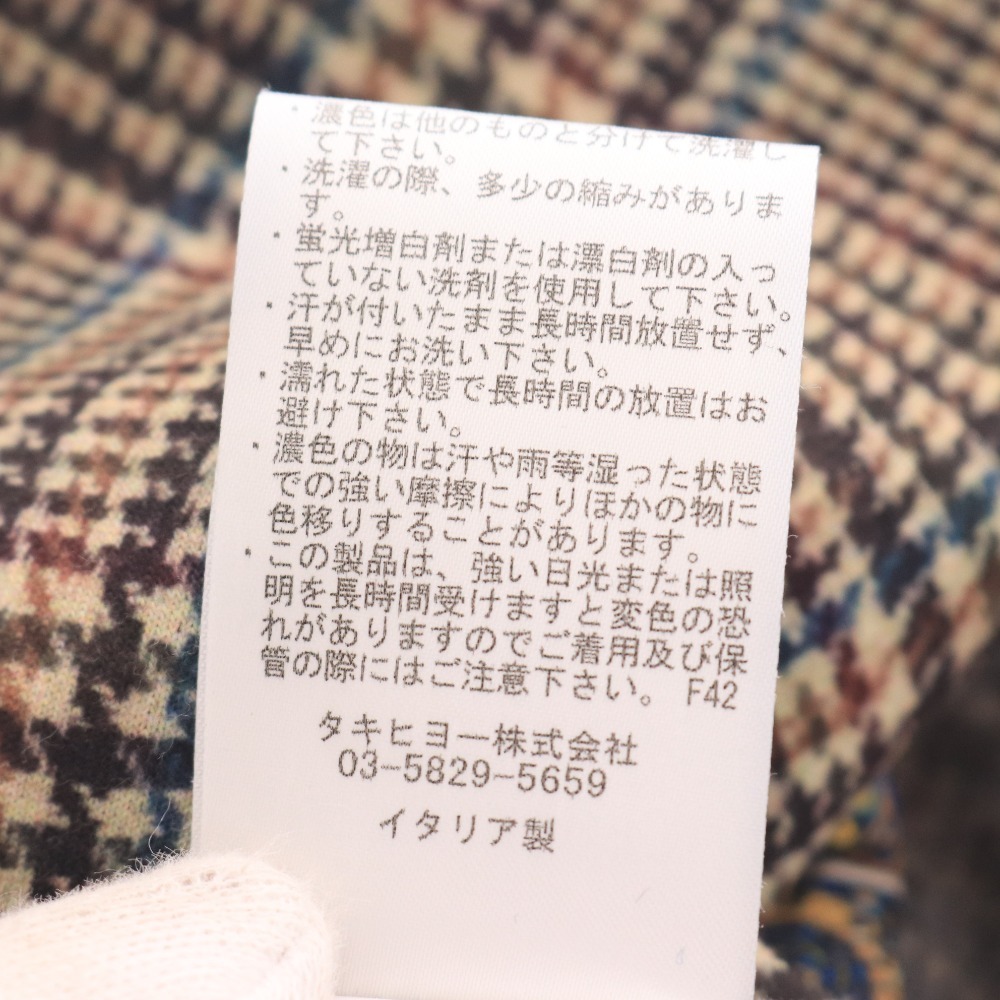 ・濃色は他のものと分けて洗濯し
て下さい。
・洗濯の際、多少の縮みがありま
す。
・蛍光増白剤または漂白剤の入っ
ていない洗剤を使用して下さい。
・汗が付いたまま長時間放置せず、
早めにお洗い下さい。
・濡れた状態で長時間の放置はお
避け下さい。
・濃色の物は汗や雨等湿った状態
での強い摩擦によりほかの物に
色移りすることがあります。
・この製品は、強い日光または照
明を長時間受けますと変色の恐
れがありますのでご着用及び保
管の際にはご注意下さい。 F42
タキヒヨー株式会社
03-5829-5659
イタリア製